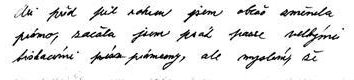 Asi před půl rokem jsem občas změnila
písmo, začala jsem psát pouze velkými
tiskacími písmeny, ale myslím, že